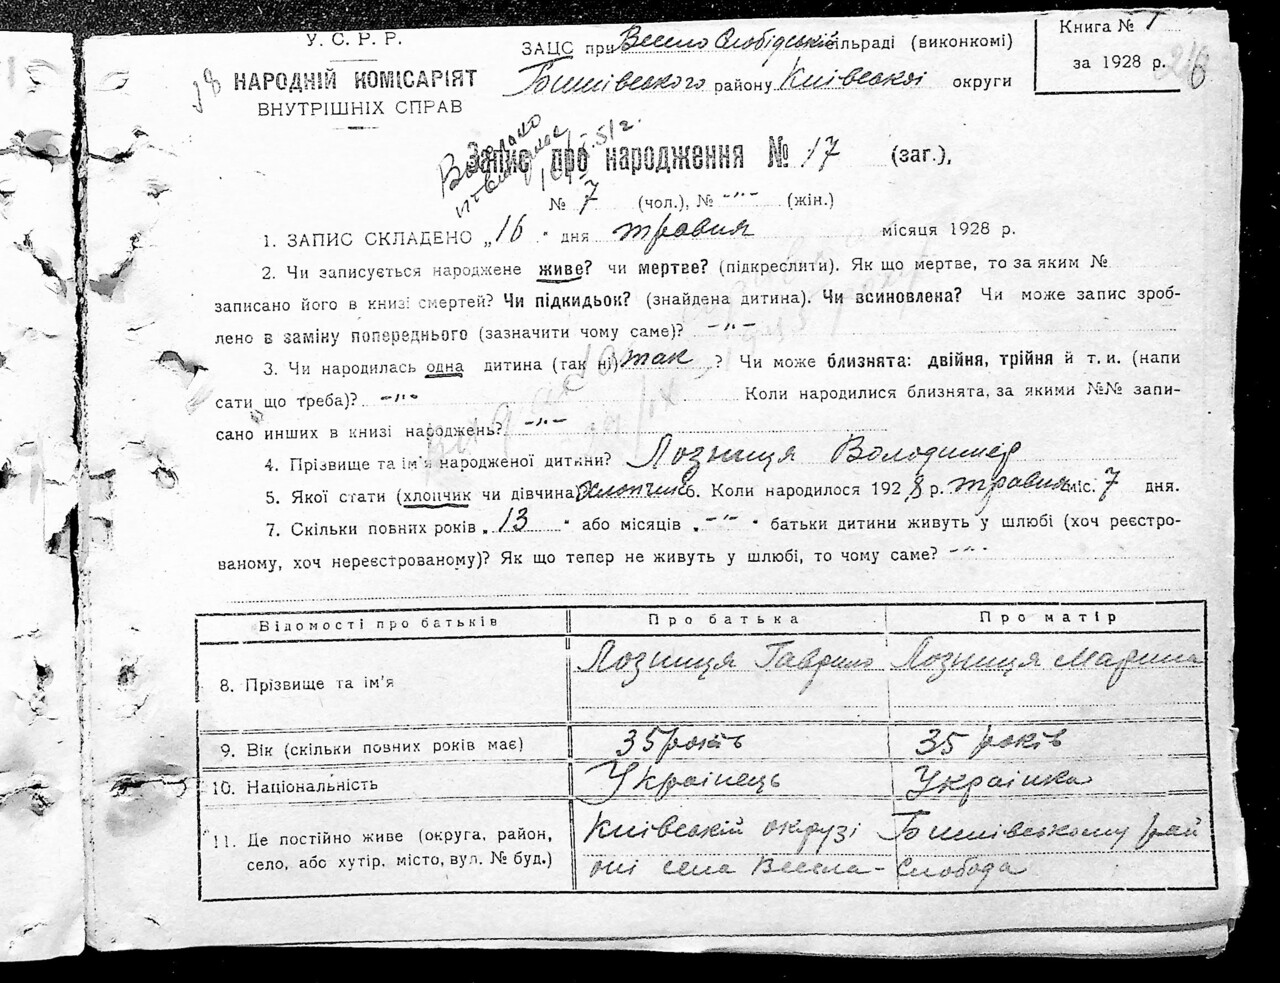 У. С. Р. Р.
НАРОДНІЙ КОМІСАРІЯТ
ВНУТРІШНІХ СПРАВ
ЗАЦС при Весело Слобідській сільраді (виконкомі)
району Київської округи
Книга № 1
за 1928 р.
18
Запис про народження № 17 (заг.),
№ 7 (чол.), № -"- (жін.)
1. ЗАПИС СКЛАДЕНО „16" дня травня місяця 1928 р.
2. Чи записується народжене живе? чи мертве? (підкреслити). Як що мертве, то за яким №
записано його в книзі смертей? Чи підкидьок? (знайдена дитина). Чи всиновлена? Чи може запис зроб-
лено в заміну попереднього (зазначити чому саме)? -"-
3. Чи народилась одна дитина (так ні) так ? Чи може близнята: двійня, трійня й т. и. (напи
сати що треба)? -"- Коли народилися близнята, за якими №№ запи-
сано инших в книзі народжень? -"-
4. Прізвище та ім'я народженої дитини? Лозниця Володимир
5. Якої стати (хлопчик чи дівчина) хлопчик 6. Коли народилося 1928 р. травня міс. 7 дня.
7. Скільки повних років „13" або місяців „-"-" батьки дитини живуть у шлюбі (хоч реєстро-
ваному, хоч нереєстрованому)? Як що тепер не живуть у шлюбі, то чому саме? -"-
Відомості про батьків Про батька Про матір
8. Прізвище та ім'я Лозниця Гаврило Лозниця Марина
9. Вік (скільки повних років має) 35 років 35 років
10. Національність Українець Українка
11. Де постійно живе (округа, район, Київській окрузі рай
село, або хутір, місто, вул. № буд.) оні села Весела-Слобода